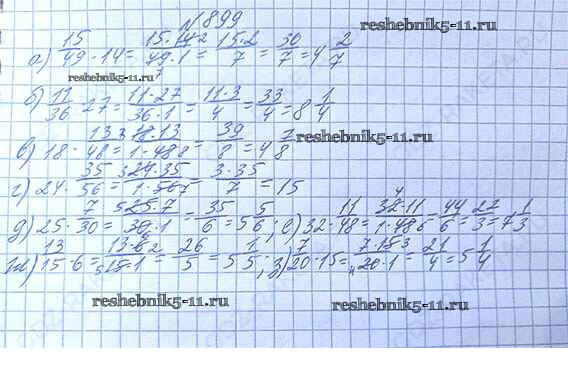 №899
reshebnik5-11.ru
а) 15/49 · 14 = 15·14 2/49·1 7 = 15·2/7 = 30/7 = 4 2/7
reshebnik5-11.ru
б) 11/36 · 27 = 11·27/36·1 = 11·3/4 = 33/4 = 8 1/4
reshebnik5-11.ru
в) 18 · 13/48 = 3 18·13/1·48 8 = 39/8 = 4 7/8
г) 24 · 35/56 = 3 24·35/1·56 7 = 3·35/7 = 15
д) 25 · 7/30 = 5 25·7/30·1 = 35/6 = 5 5/6; е) 32 · 11/48 = 4 32·11/1·48 6 = 44/6 = 22/3 = 7 1/3
ж) 13/15 · 6 = 13·6 2/5 15·1 = 26/5 = 5 1/5; з) 7/20 · 15 = 7·15 3/4 20·1 = 21/4 = 5 1/4
reshebnik5-11.ru
reshebnik5-11.ru